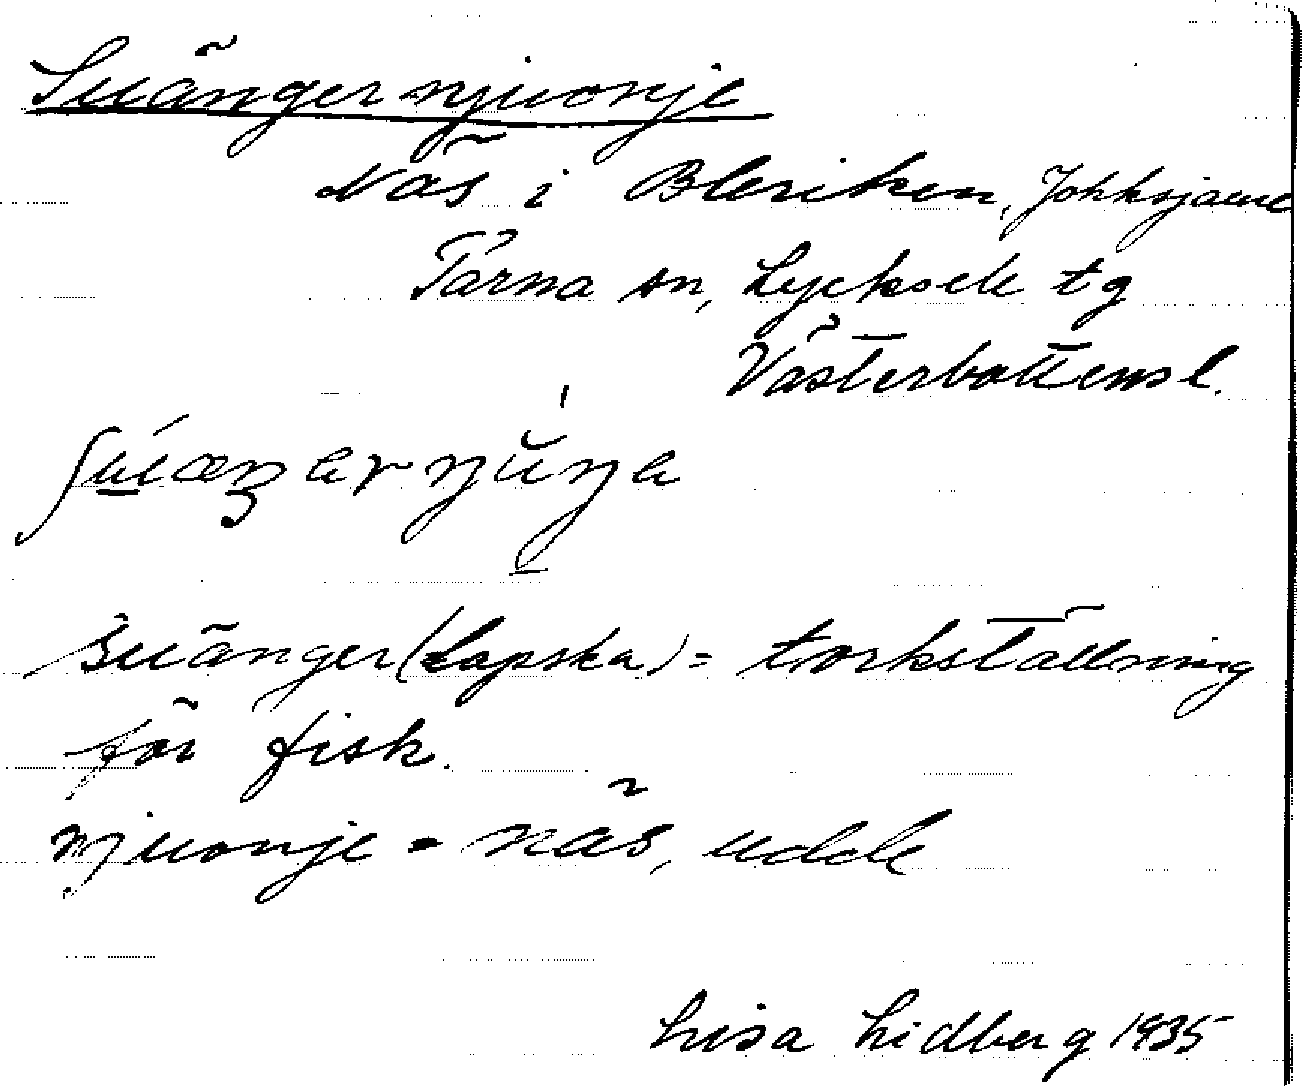 Suängernjuonje
Näs i Bleriken, Jokksjaure
Tärna sn, Lycksele tg
Västerbottens l.
suänger (Lapska) = torkställning
för fisk.
njuonje = näs, udde
Lisa Lidberg 1935